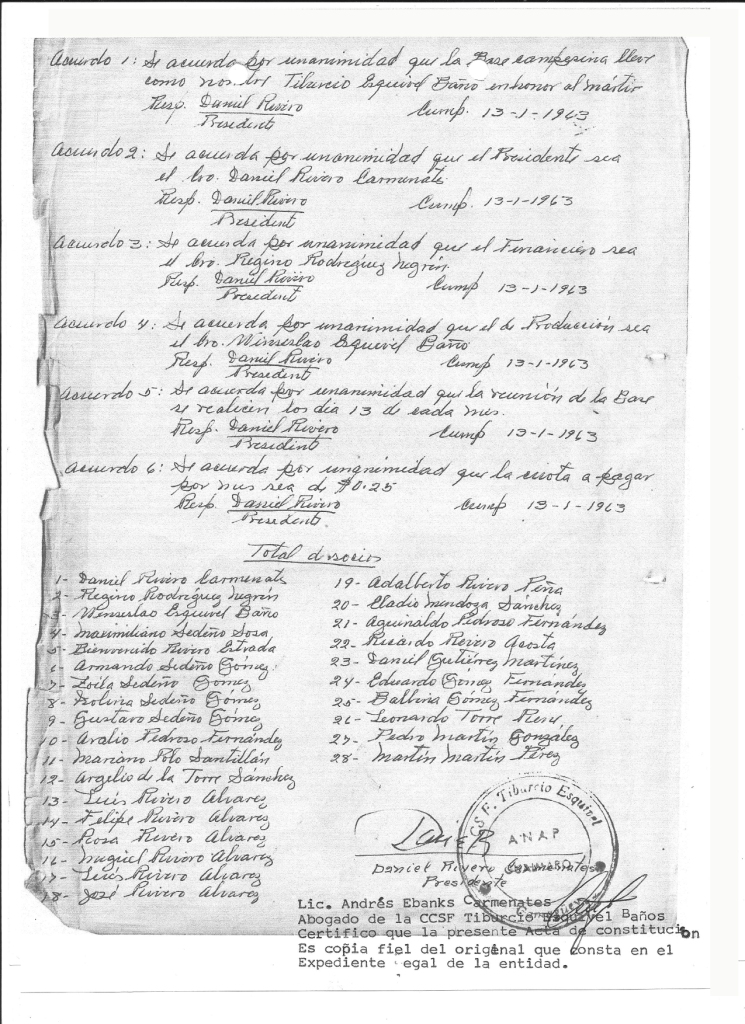 Acuerdo 1: Se acuerda por unanimidad que la Base campesina lleve
como nombre Tiburcio Esquivel Baño en honor al mártir
Resp. Daniel Rivero Cump. 13-1-1963
President
Acuerdo 2: Se acuerda por unanimidad que el Presidente sea
el Cro. Daniel Rivero Carmenate
Resp. Daniel Rivero Cump. 13-1-1963
President
Acuerdo 3: Se acuerda por unanimidad que el Financiero sea
el Cro. Regino Rodríguez Negrín.
Resp. Daniel Rivero Cump 13-1-1963
President
Acuerdo 4: Se acuerda por unanimidad que el de Producción sea
el Cro. Winseslao Esquivel Baño
Resp. Daniel Rivero Cump 13-1-1963
President
Acuerdo 5: Se acuerda por unanimidad que la reunión de la Base
se realicen los día 13 de cada mes.
Resp. Daniel Rivero Cump 13-1-1963
President
Acuerdo 6: Se acuerda por unanimidad que la cuota a pagar
por mes sea de $0.25
Resp. Daniel Rivero Cump 13-1-1963
President
Total de socios
1- Daniel Rivero Carmenate
2- Regino Rodríguez Negrín
3- Winseslao Esquivel Baño
4- Maximiliano Sedeño Sosa
5- Bienvenido Rivero Estrada
6- Armando Sedeño Gómez
7- Zoila Sedeño Gómez
8- Isolina Sedeño Gómez
9- Gustavo Sedeño Gómez
10- Aralio Pedroso Fernández
11- Mariano Polo Santillán
12- Argelio de la Torre Sánchez
13- Luis Rivero Alvarez
14- Felipe Rivero Alvarez
15- Rosa Rivero Alvarez
16- Miguel Rivero Alvarez
17- Luis Rivero Alvarez
18- José Rivero Alvarez
19- Adalberto Rivero Peña
20- Eladio Mendoza Sánchez
21- Aguinaldo Pedroso Fernández
22- Ricardo Rivero Acosta
23- Daniel Gutiérrez Martínez
24- Eduardo Gómez Fernández
25- Balbina Gómez Fernández
26- Leonardo Torre
27- Pedro Martín González
28- Martín Martín Pérez
Daniel Rivero Carmenates
Presidente
CCS F. Tiburcio Esquivel
ANAP
Lic. Andrés Ebanks Carmenates
Abogado de la CCSF Tiburcio Esquivel Baños
Certifico que la presente Acta de constitución
Es copia fiel del original que consta en el
Expediente legal de la entidad.